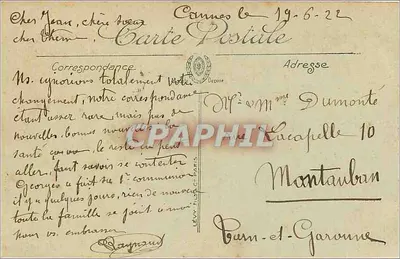 Cannes le 19-6-22
Cher Jean, chère soeur
cher
Carte Postale
Correspondance
Adresse
Ns ignorions totalement votre
changement; notre correspondance
étant assez rare mais pas de
nouvelles, bonnes nouvelles. La
santé ça va, le reste un peut
aller, faut savoir se contenter
Georges a fait sa 1ère communion
il y a quelques jours, rien de nouveau
toute la famille se joint à moi
pour vs embrasser
Raynaud
Mr & Mme Dumonté
rue Lacapelle 10
Montauban
Tarn-et-Garonne
CPAPHIL